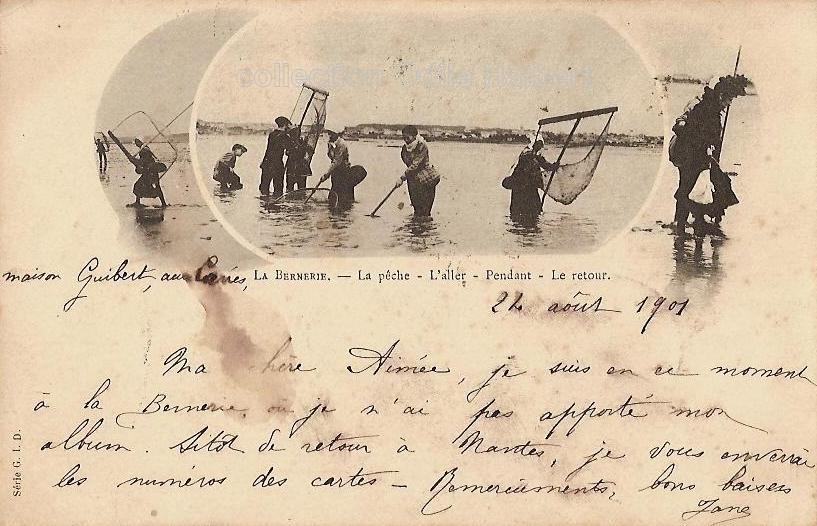 collection
LA BERNERIE. — La pêche - L'aller - Pendant - Le retour.
maison Guibert, aux
24 août 1901
Ma chère Aimée, je suis en ce moment
à la Bernerie, où je n'ai pas apporté mon
album. Sitôt de retour à Nantes, je vous enverrai
les numéros des cartes — Remerciements, bons baisers
Jane
Série G. I. D.